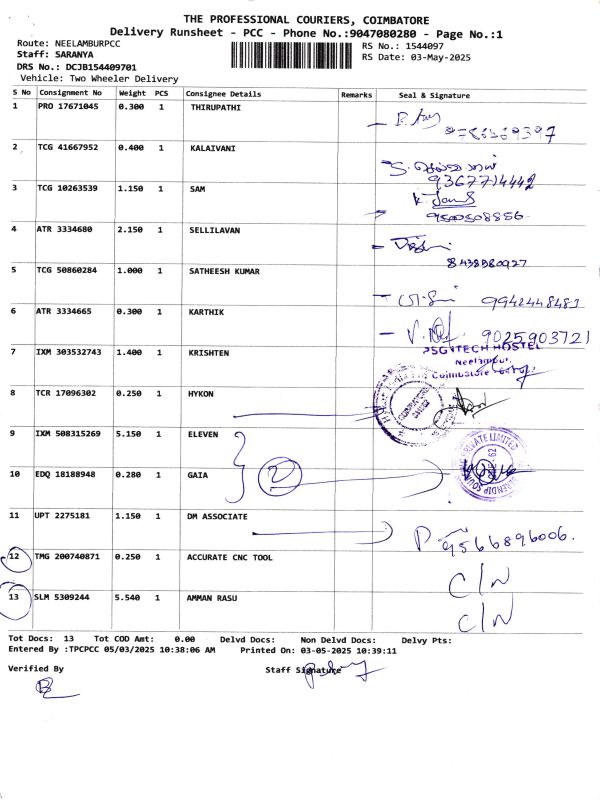 THE PROFESSIONAL COURIERS, COIMBATORE
Delivery Runsheet - PCC - Phone No.:9047080280 - Page No.:1
Route: NEELAMBURPCC RS No.: 1544097
Staff: SARANYA RS Date: 03-May-2025
DRS No.: DCJB154409701
Vehicle: Two Wheeler Delivery
S No Consignment No Weight PCS Consignee Details Remarks Seal & Signature
1 PRO 17671045 0.300 1 THIRUPATHI
2 TCG 41667952 0.400 1 KALAIVANI
9367714442
3 TCG 10263539 1.150 1 SAM
9500508856
4 ATR 3334680 2.150 1 SELLILAVAN
8438380927
5 TCG 50860284 1.000 1 SATHEESH KUMAR
9942448481
6 ATR 3334665 0.300 1 KARTHIK
9025903721
PSG iTECH HOSTEL
Neelambur,
Coimbatore
7 IXM 303532743 1.400 1 KRISHTEN
8 TCR 17096302 0.250 1 HYKON
9 IXM 508315269 5.150 1 ELEVEN
10 EDQ 18188948 0.280 1 GAIA
2
11 UPT 2275181 1.150 1 DM ASSOCIATE
9566896006.
12 TMG 200740871 0.250 1 ACCURATE CNC TOOL
C/N
13 SLM 5309244 5.540 1 AMMAN RASU
C/N
Tot Docs: 13 Tot COD Amt: 0.00 Delvd Docs: Non Delvd Docs: Delvy Pts:
Entered By :TPCPCC 05/03/2025 10:38:06 AM Printed On: 03-05-2025 10:39:11
Verified By Staff Signature